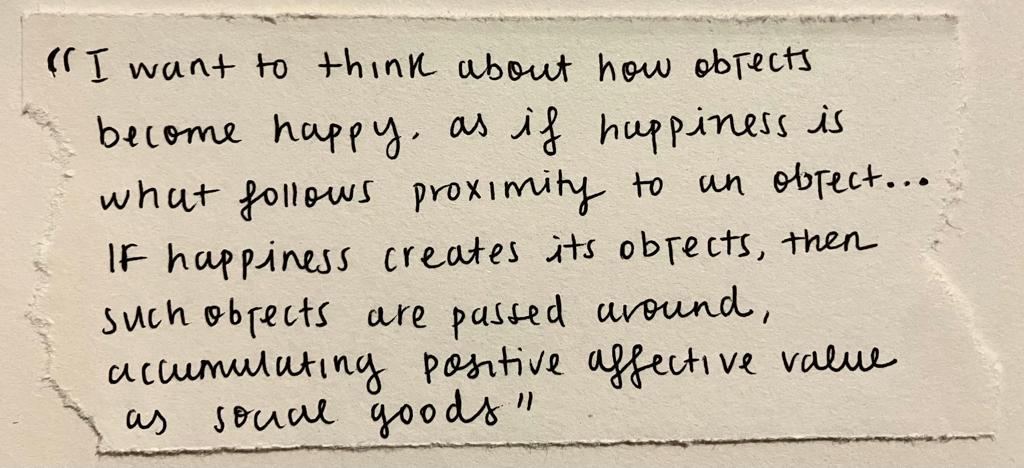 "I want to think about how objects
become happy, as if happiness is
what follows proximity to an object...
If happiness creates its objects, then
such objects are passed around,
accumulating positive affective value
as social goods"